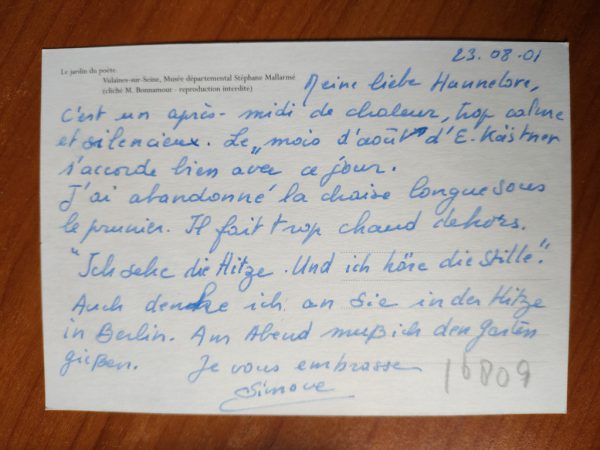 23.08.01
Le jardin du poète.
Vulaines-sur-Seine, Musée départemental Stéphane Mallarmé
(cliché M. Bonnamour - reproduction interdite)
Meine liebe Hannelore,
C'est un après-midi de chaleur, trop calme
et silencieux. Le „mois d'août" d'E. Kästner
s'accorde bien avec ce jour.
J'ai abandonné la chaise longue sous
le prunier. Il fait trop chaud dehors.
"Ich sehe die Hitze. Und ich höre die Stille".
Auch denke ich an Sie in der Hitze
in Berlin. Am Abend muß ich den Garten
gießen. Je vous embrasse
Simone
16809